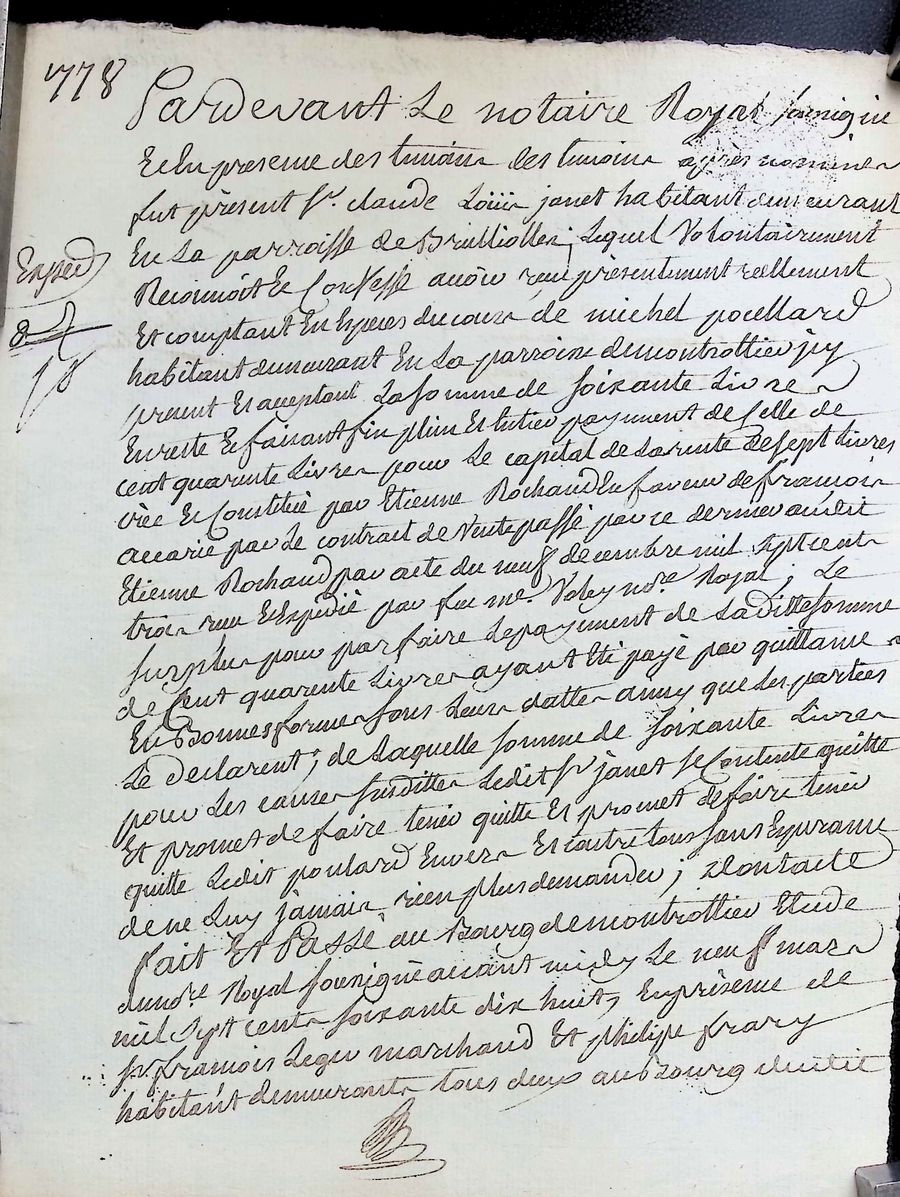 1778
Pardevant Le notaire Royal sousigné
Et En presence des temoins des temoins après nommés
fut present Sr. claude Louis janet habitant demeurant
En La parroisse de Brulliolles, Lequel Volontairement
Reconnoit Et Confesse avoir reçu présentement reellement
Exped
Et comptant En Especes du cours de michel pocellard
habitant demeurant En La parroisse de montrottier icy
present Et acceptant La somme de soixante Livres
En reste Et faisant fin plein Et Entier payement de Celle de
cent quarente Livres pour Le capital de La rente de sept Livres
créé Et Constitué par Etienne Rochand En faveur de françois
accarié par Le contrait de Vente passé par ce dernier audit
Etienne Rochand par acte du neuf decembre mil sept cent
trois reçu Et Expedié par feu me. nore. Royal; Le
surplus pour par faire Le payement de La ditte somme
de Cent quarente Livres ayant Eté payé par quittances
En Bonnes formes sous Leurs dattes ainsy que Les parties
Le declarent; de Laquelle somme de soixante Livres
pour Les causes susdittes Ledit Sr janet se Contente quitte
Et promet de faire tenir quitte Et promet de faire tenir
quitte Ledit poulard Envers Et contre tous sans Esperance
de ne Luy jamais rien plus demander; Dont acte
fait Et Passé au Bourg de montrottier Etude
du nore. Royal sousigné avant midy Le neuf mars
mil sept cent soixante dix huit, En présence de
Sr. françois Leger marchand Et philipe frary
habitant demeurants tous deux au Bourg dudit